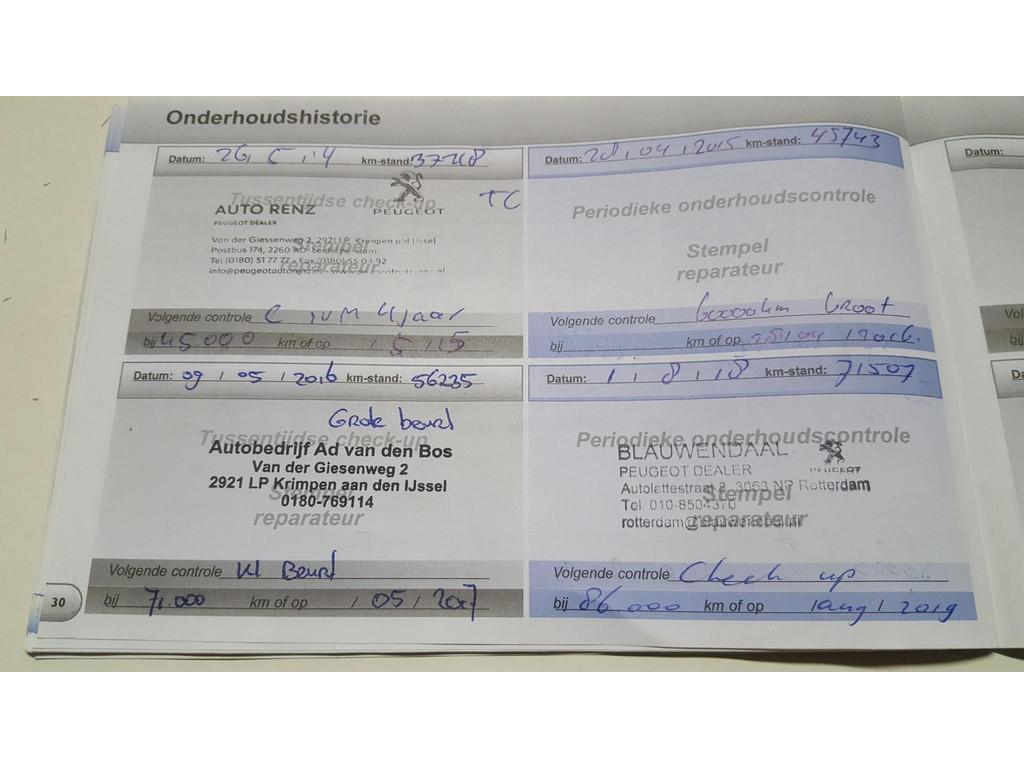 Onderhoudshistorie
Datum: 26 / 5 / 14 km-stand: 37248
Tussentijdse check-up
TC
AUTO RENZ PEUGEOT
PEUGEOT DEALER
Van der Giessenweg 2, 2921 LP Krimpen a/d IJssel
Postbus 174, 2260 AD
Tel (0180) 51 77 77 - Fax (0180) 55 04 92
Stempel
reparateur
Volgende controle C 4 jaar
bij 45000 km of op / 5 / 15
Datum: 28 / 04 / 2015 km-stand: 45743
Periodieke onderhoudscontrole
Stempel
reparateur
Volgende controle 60000km Groot
bij km of op 28 / 04 / 2016.
Datum: 09 / 05 / 2016 km-stand: 56235
Grote beurt
Tussentijdse check-up
Autobedrijf Ad van den Bos
Van der Giesenweg 2
2921 LP Krimpen aan den IJssel
0180-769114
Stempel
reparateur
Volgende controle Kl Beurt
bij 71.000 km of op / 05 / 2017
Datum: 1 / 8 / 18 km-stand: 71507
Periodieke onderhoudscontrole
BLAUWENDAAL
PEUGEOT DEALER PEUGEOT
Autolettestraat 2, 3063 NP Rotterdam
Tel. 010-8504370
Stempel
reparateur
Volgende controle Check up
bij 86000 km of op / aug / 2019
30
Datum: